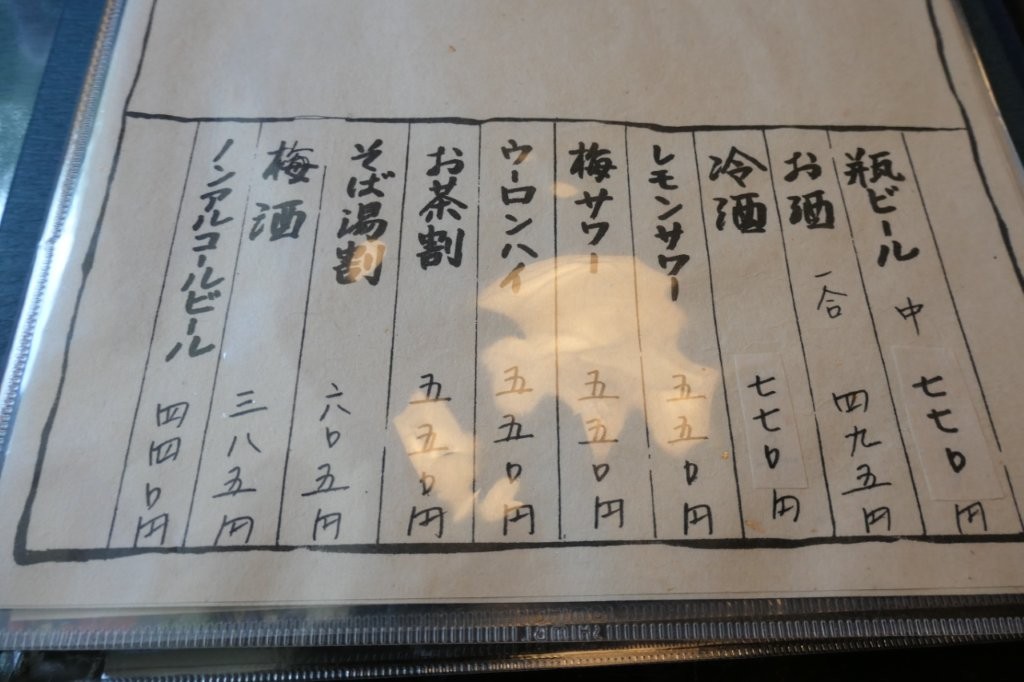 瓶ビール 中 七七〇円
お酒 一合 四九五円
冷酒 七七〇円
レモンサワー 五五〇円
梅サワー 五五〇円
ウーロンハイ 五五〇円
お茶割 五五〇円
そば湯割 六〇五円
梅酒 三八五円
ノンアルコールビール 四四〇円